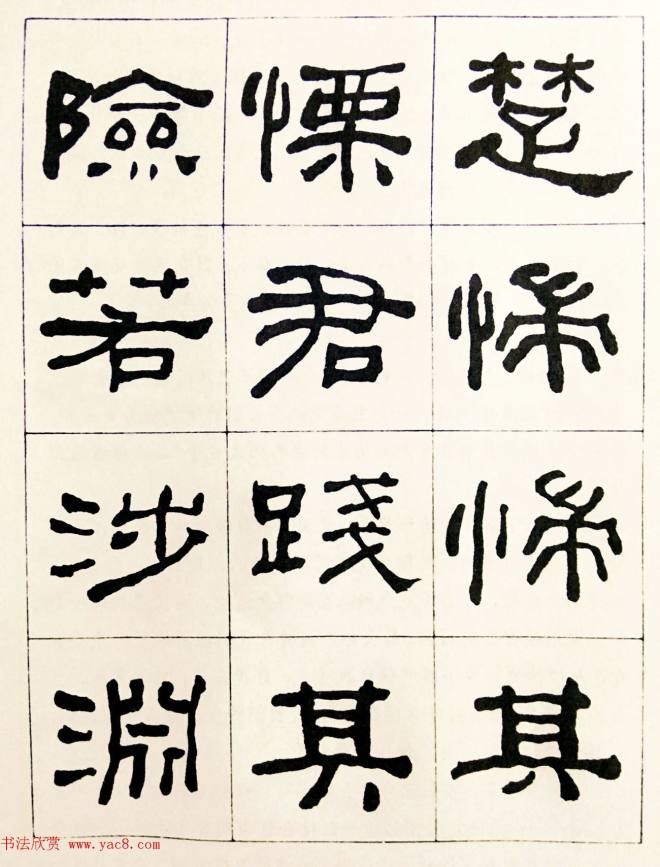 楚惴惴其
慄君踐其
險若涉淵
书法欣赏 www.yac8.com